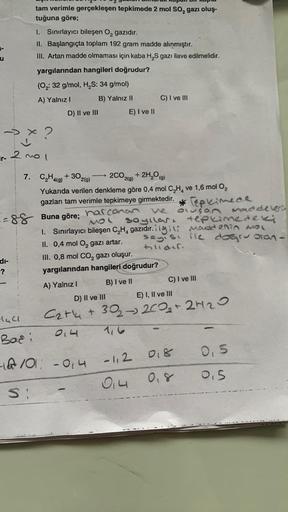 tam verimle gerçekleşen tepkimede 2 mol SO₂ gazı oluş-
tuğuna göre;
I. Sınırlayıcı bileşen O₂ gazıdır.
II. Başlangıçta toplam 192 gram madde alınmıştır.
III. Artan madde olmaması için kaba H₂S gazı ilave edilmelidir.
yargılarından hangileri doğrudur?
(O₂: 32 g/mol, H₂S: 34 g/mol)
A) Yalnız I B) Yalnız II C) I ve III
D) II ve III E) I ve II
→ x ?
2 mol
7. C₂H₄(g) + 3O₂(g) → 2CO₂(g) + 2H₂O(g)
Yukarıda verilen denkleme göre 0,4 mol C₂H₄ ve 1,6 mol O₂
gazları tam verimle tepkimeye girmektedir.
* Tepkimede
harcanan ve oluşan maddelerin
= 88
Buna göre;
mol sayıları tepkimedeki
I. Sınırlayıcı bileşen C₂H₄ gazıdır.
ilgili maddenin mol
sayısı ile doğru oran-
II. 0,4 mol O₂ gazı artar.
tılıdır.
III. 0,8 mol CO₂ gazı oluşur.
yargılarından hangileri doğrudur?
A) Yalnız I B) I ve II C) I ve III
D) II ve III E) I, II ve III
C₂H₄ + 3O₂ → 2CO₂ + 2H₂O
0,4 1,6 - -
-0,4 -1,2 0,8 0,5
S: - 0,4 0,8 0,5